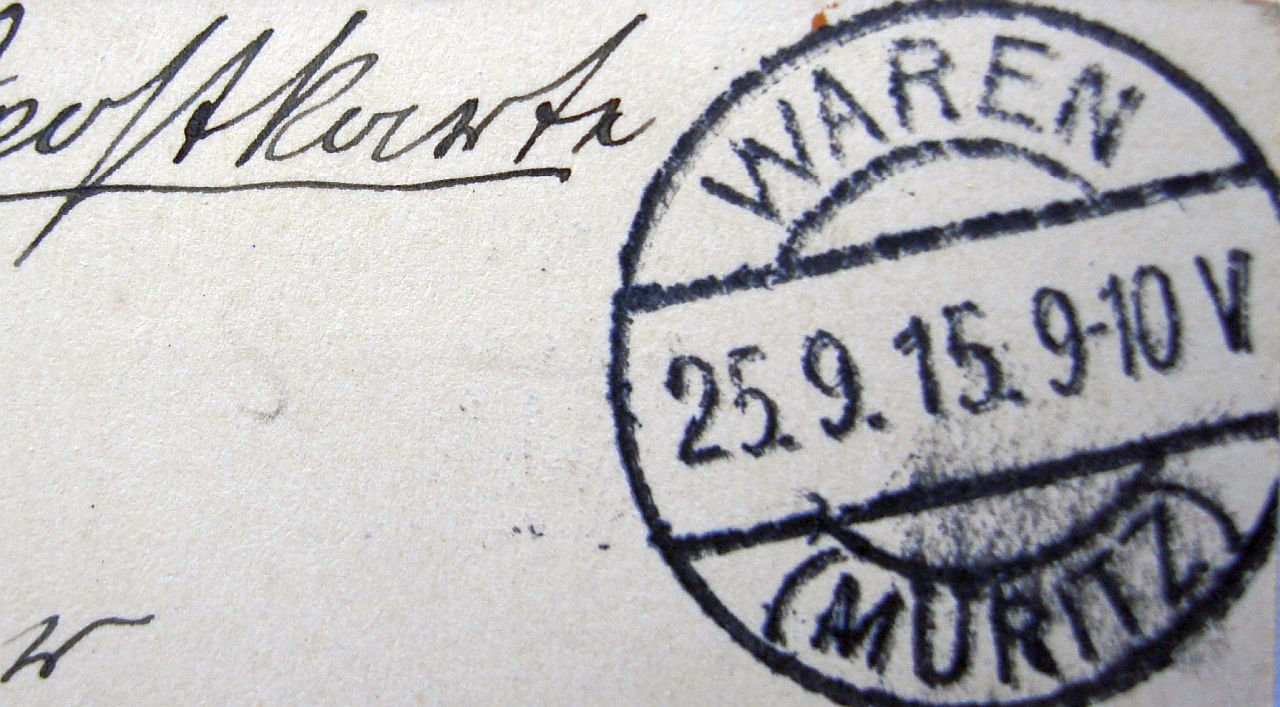 postkarte
WAREN
25.9.15.9-10 V
(MURITZ)